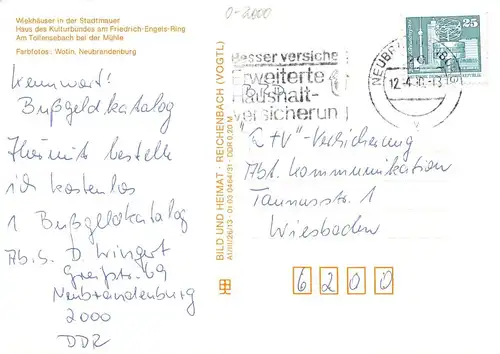 Wiekhäuser in der Stadtmauer
Haus des Kulturbundes am Friedrich-Engels-Ring
Am Tollensebach bei der Mühle
Farbfotos: Wotin, Neubrandenburg
0-2000
Kennwort!
Bußgeldkatalog
Hiermit bestelle
ich kostenlos
1 Bußgeldkatalog
Abs. D. Wingert
Greifstr. 69
Neubrandenburg
2000
DDR
BILD UND HEIMAT · REICHENBACH (VOGTL)
A1/III/26/13 · 01 03 0464/31 · DDR 0,20 M
Besser versiche
Erweiterte
Haushalt-
versicherun
BRD
25
12.-4.
"R+V"-Versicherung
Abt. Kommunikation
Taunusstr. 1
Wiesbaden
6200